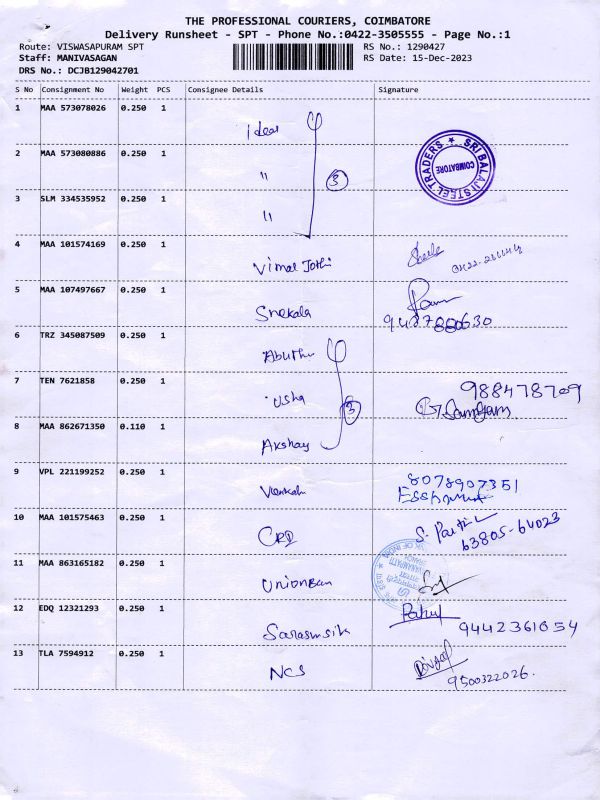 THE PROFESSIONAL COURIERS, COIMBATORE
Delivery Runsheet - SPT - Phone No.:0422-3505555 - Page No.:1
Route: VISWASAPURAM SPT RS No.: 1290427
Staff: MANIVASAGAN RS Date: 15-Dec-2023
DRS No.: DCJB129042701
S No Consignment No Weight PCS Consignee Details Signature
1 MAA 573078026 0.250 1
idea
2 MAA 573080886 0.250 1
" 3
SRI BALAJI STEEL TRADERS
COIMBATORE
3 SLM 334535952 0.250 1
"
4 MAA 101574169 0.250 1
Vimal Jothi
5 MAA 107497667 0.250 1
Snekala
9487880630
6 TRZ 345087509 0.250 1
7 TEN 7621858 0.250 1
988478709
Usha 3
8 MAA 862671350 0.110 1
Akshay
9 VPL 221199252 0.250 1
8078907351
10 MAA 101575463 0.250 1
63805-64023
11 MAA 863165182 0.250 1
Union Ban
12 EDQ 12321293 0.250 1
Rahul
9442361054
13 TLA 7594912 0.250 1
NCS
9500322026.